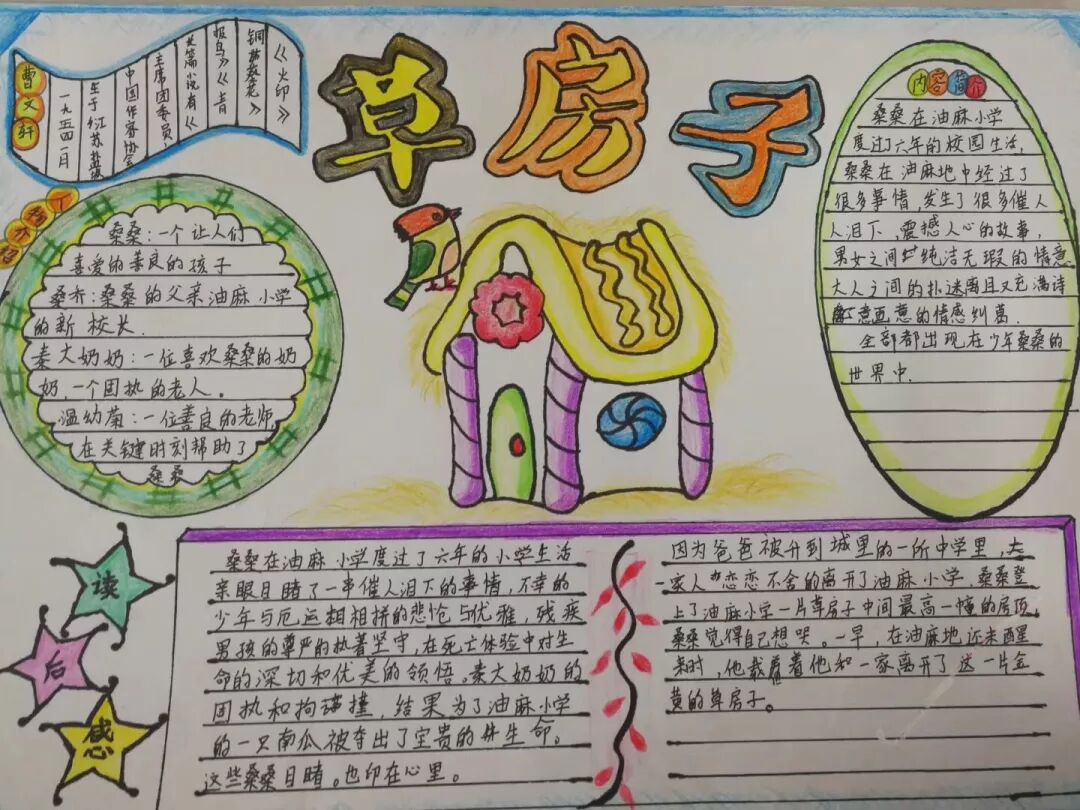 草房子
曹文轩
一九五四一日
生于江苏盐城
中国作家协会
主席团委员，
长篇小说有《
根鸟》《青
铜葵葵花》
《火印》
人物介绍
桑桑：一个让人们
喜爱的善良的孩子
桑乔：桑桑的父亲油麻小学
的新校长.
秦大奶奶：一位喜欢桑桑的奶
奶，一个固执的老人。
温幼菊：一位善良的老师，
在关键时刻帮助了
桑桑
内容简介
桑桑在油麻小学
度过了六年的校园生活，
桑桑在油麻地中经过了
很多事情，发生了很多催人
人泪下，震撼人心的故事，
男女之间纯洁无瑕的情意
大人之间的扑迷离且又充满诗
意画意的情感纠葛.
全部都出现在少年桑桑的
世界中.
读后感
桑桑在油麻小学度过了六年的小学生活
亲眼目睹了一串催人泪下的事情，不幸的
少年与厄运相相拼的悲怆与优雅，残疾
男孩的尊严的执著坚守，在死亡体验中对生
命的深切和优美的领悟。秦大奶奶的
固执和拘撞，结果为了油麻小学
的一只南瓜被夺出了宝贵的生命。
这些桑桑目睹。也印在心里。
因为爸爸被升到城里的一所中学里，大
一家人恋恋不舍的离开了油麻小学，桑桑登
上了油麻小学一片草房子中间最高一幢的房顶，
桑桑觉得自己想哭。一早，在油麻地还未醒
来时，他载着他和一家离开了这一片金
黄的草房子。